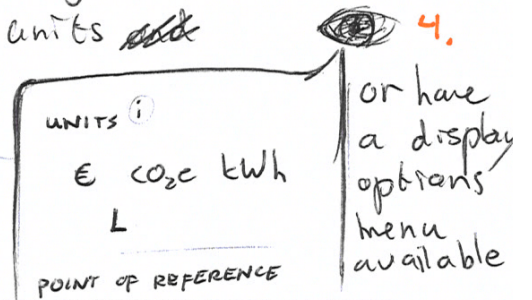 units
4.
UNITS i
€ CO₂e tWh
L
POINT OF REFERENCE
or have
a display
options
menu
available